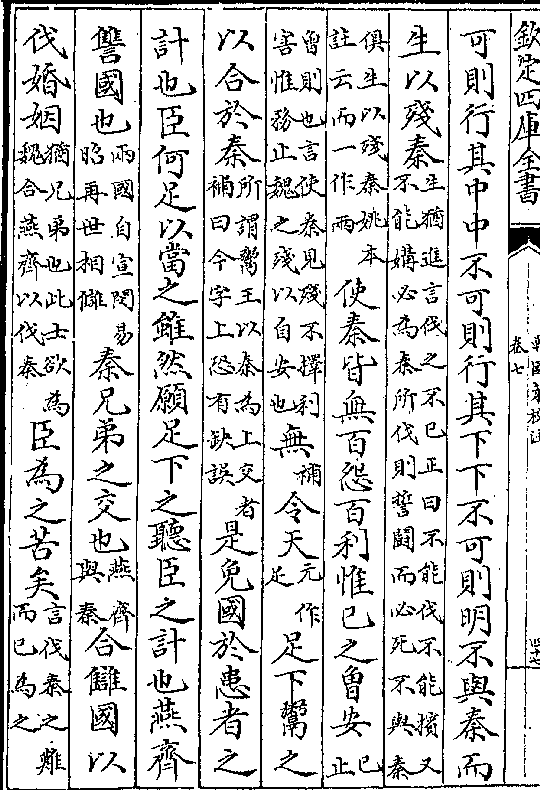 欽定四庫全書
戰國策校注
卷七
四十七
可則行其中中不可則行其下下不可則明不與秦而
生以殘秦生猶進言伐之不已正曰不能伐不能擯又不能媾必為秦所伐則誓鬭而必死不與秦
俱生以殘秦姚本註云而一作兩使秦皆無百怨百利惟已之曾安已止
曾則也言使秦見殘不擇利害惟務止魏之殘以自安也無補令天元作足足下鬻之
以合於秦所謂鬻王以秦為上交者補曰今字上恐有缺誤是免國於患者之
計也臣何足以當之雖然願足下之聽臣之計也燕齊
讐國也兩國自宣閔易昭再世相讎秦兄弟之交也燕齊與秦合讎國以
伐婚姻猶兄弟也此士欲為魏合燕齊以伐秦臣為之苦矣言伐秦之難而已為之